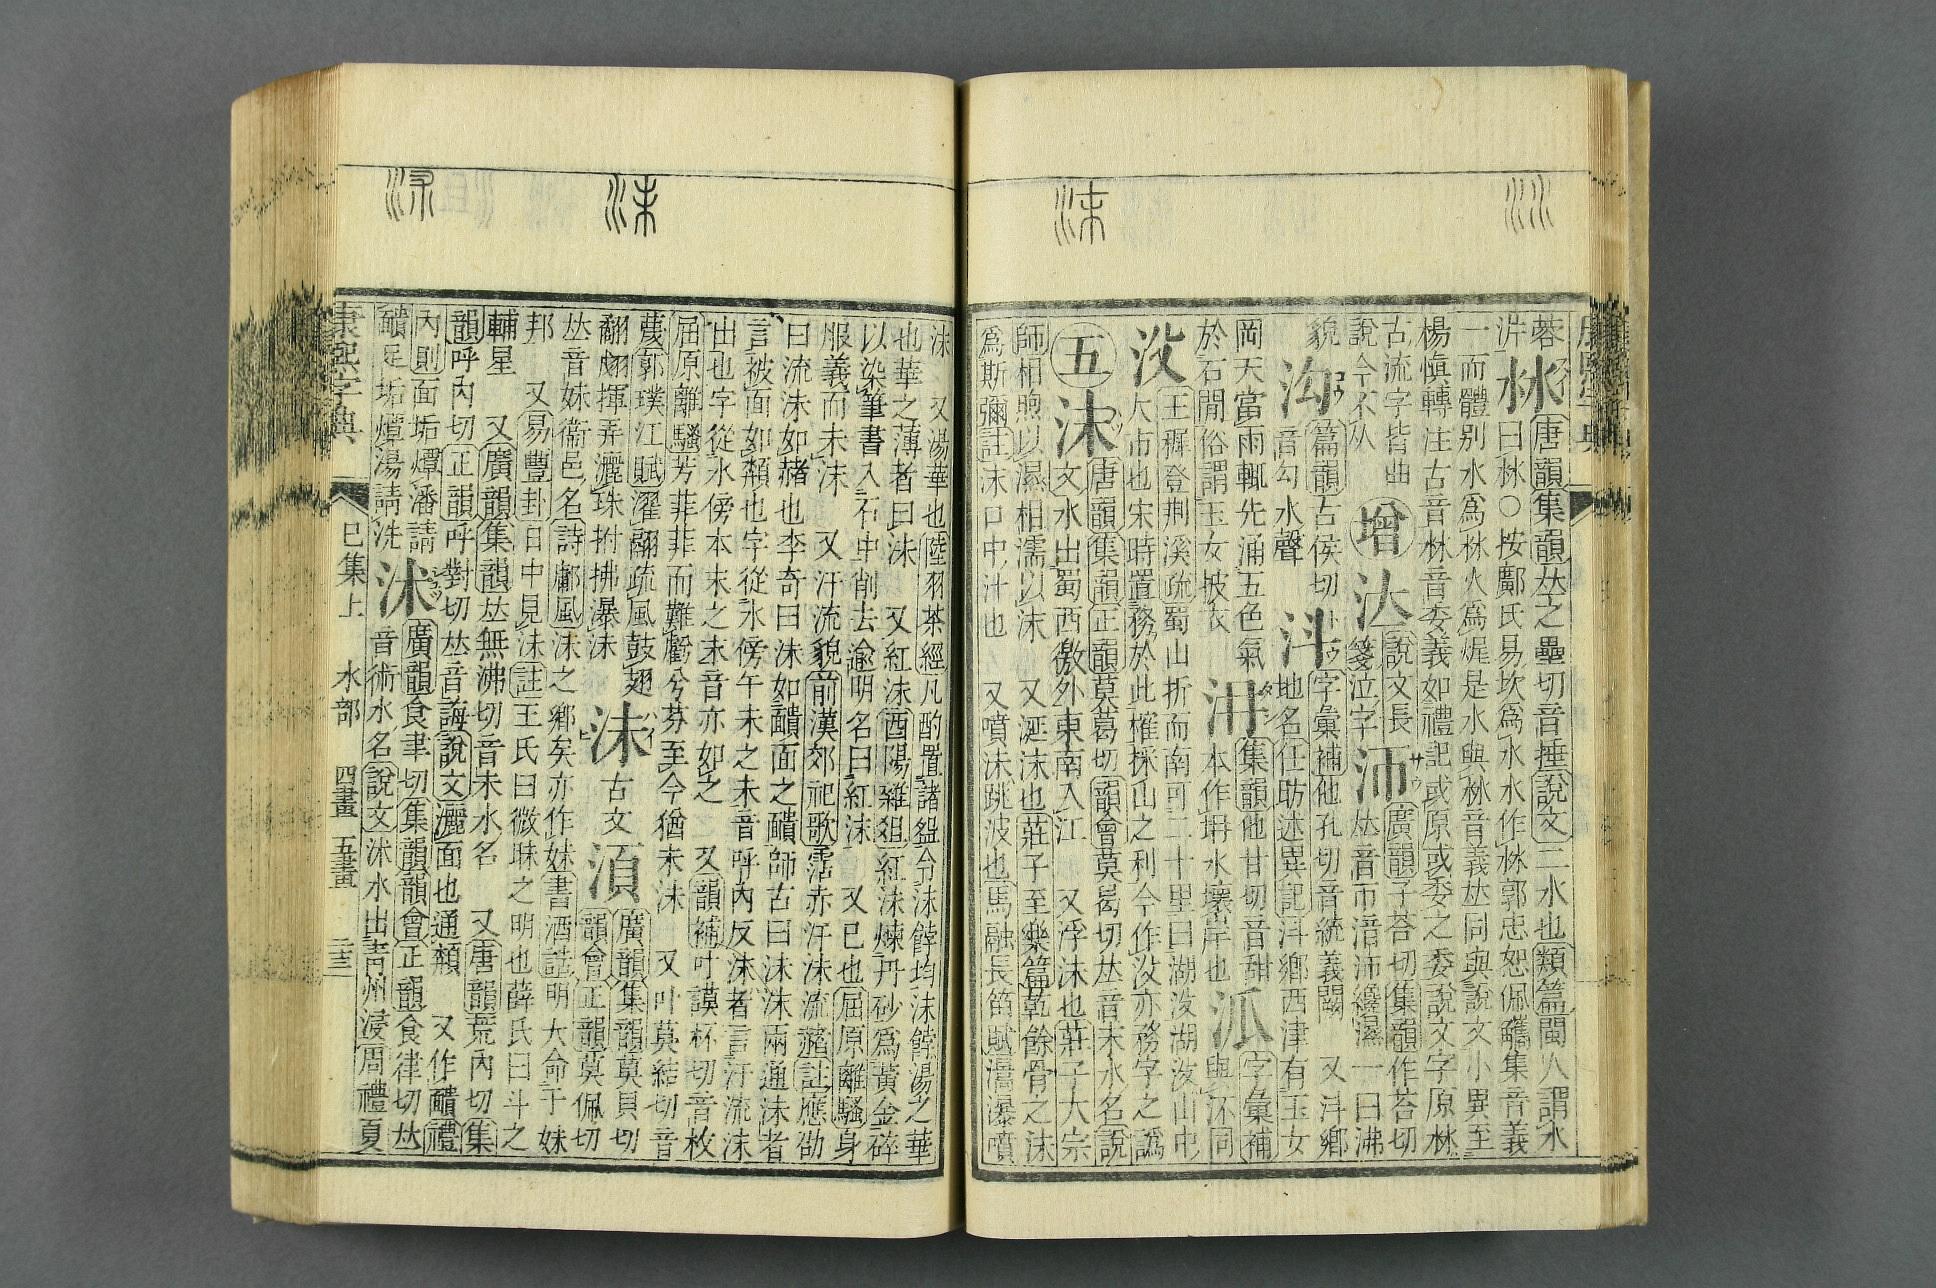 康熙字典
蓉
沜
沝
唐韻集韻𠀤之壘切音捶說文二水也類篇閩人謂水
曰沝○按鄺氏易坎爲水水作沝郭忠恕佩觿集音義
一而體別水爲沝火爲焜是水與沝音義𠀤同與說文小異至
楊愼轉注古音沝音委義如禮記或原或委之委說文字原沝
古流字皆曲
說今不从
增
說文長
箋泣字
沞
廣韻子荅切集韻作荅切
𠀤音帀湆沞纔濕一曰沸
貌
沟
篇韻古侯切
音勾水聲
字彙補他孔切音統義闕 又鄉
地名任昉述異記鄉西津有玉女
岡天當雨輒先涌五色氣
於石閒俗謂玉女披衣
集韻他甘切音甜
本作坍水壞岸也
泒
字彙補
與沠同
㳇
王穉登荆溪疏蜀山折而南可二十里曰湖㳇湖㳇山中
大市也宋時置務於此榷採山之利今作㳇亦務字之譌
五
沫
唐韻集韻正韻莫葛切韻會莫曷切𠀤音末水名說
文水出蜀西徼外東南入江 又浮沫也莊子大宗
師相呴以濕相濡以沫 又涎沫也莊子至樂篇乾餘骨之沫
爲斯彌註沫口中汁也 又噴沫跳波也馬融長笛賦瀑噴
沫 又湯華也陸羽茶經凡酌置諸盌令沫餑均沫餑湯之華
也華之薄者曰沫 又紅沫酉陽雜俎紅沫煉丹砂爲黃金碎
以染筆書入石中削去逾明名曰紅沫 又已也屈原離騷身
服義而未沫 又汗流貌前漢郊祀歌霑赤汗沬流赭註應劭
曰流沫如赭也李奇曰沬如靧面之靧師古曰沬沫兩通沫者
言被面如頮也字從水傍午未之未音呼內反沫者言汗流沫
出也字從水傍本末之末音亦如之 又韻補叶謨杯切音枚
屈原離騷芳菲菲而難虧兮芬至今猶未沬 又叶莫結切音
蔑郭璞江賦濯翮疏風鼓翅
翻翍揮弄灑珠拊拂瀑沫
沬
古文頮
廣韻集韻莫貝切
韻會正韻莫佩切
𠀤音妹衞邑名詩鄘風沬之鄉矣亦作妹書酒誥明大命于妹
邦 又易豐卦日中見沬註王氏曰微昧之明也薛氏曰斗之
輔星 又廣韻集韻𠀤無沸切音未水名 又唐韻荒內切集
韻呼內切正韻呼對切𠀤音誨說文灑面也通頮 又作靧禮
內則面垢燂潘請
靧足垢燂湯請洗
沭
廣韻食聿切集韻韻會正韻食律切𠀤
音術水名說文沭水出靑州浸周禮夏
康熙字典 巳集上 水部 四畫 五畫 二三